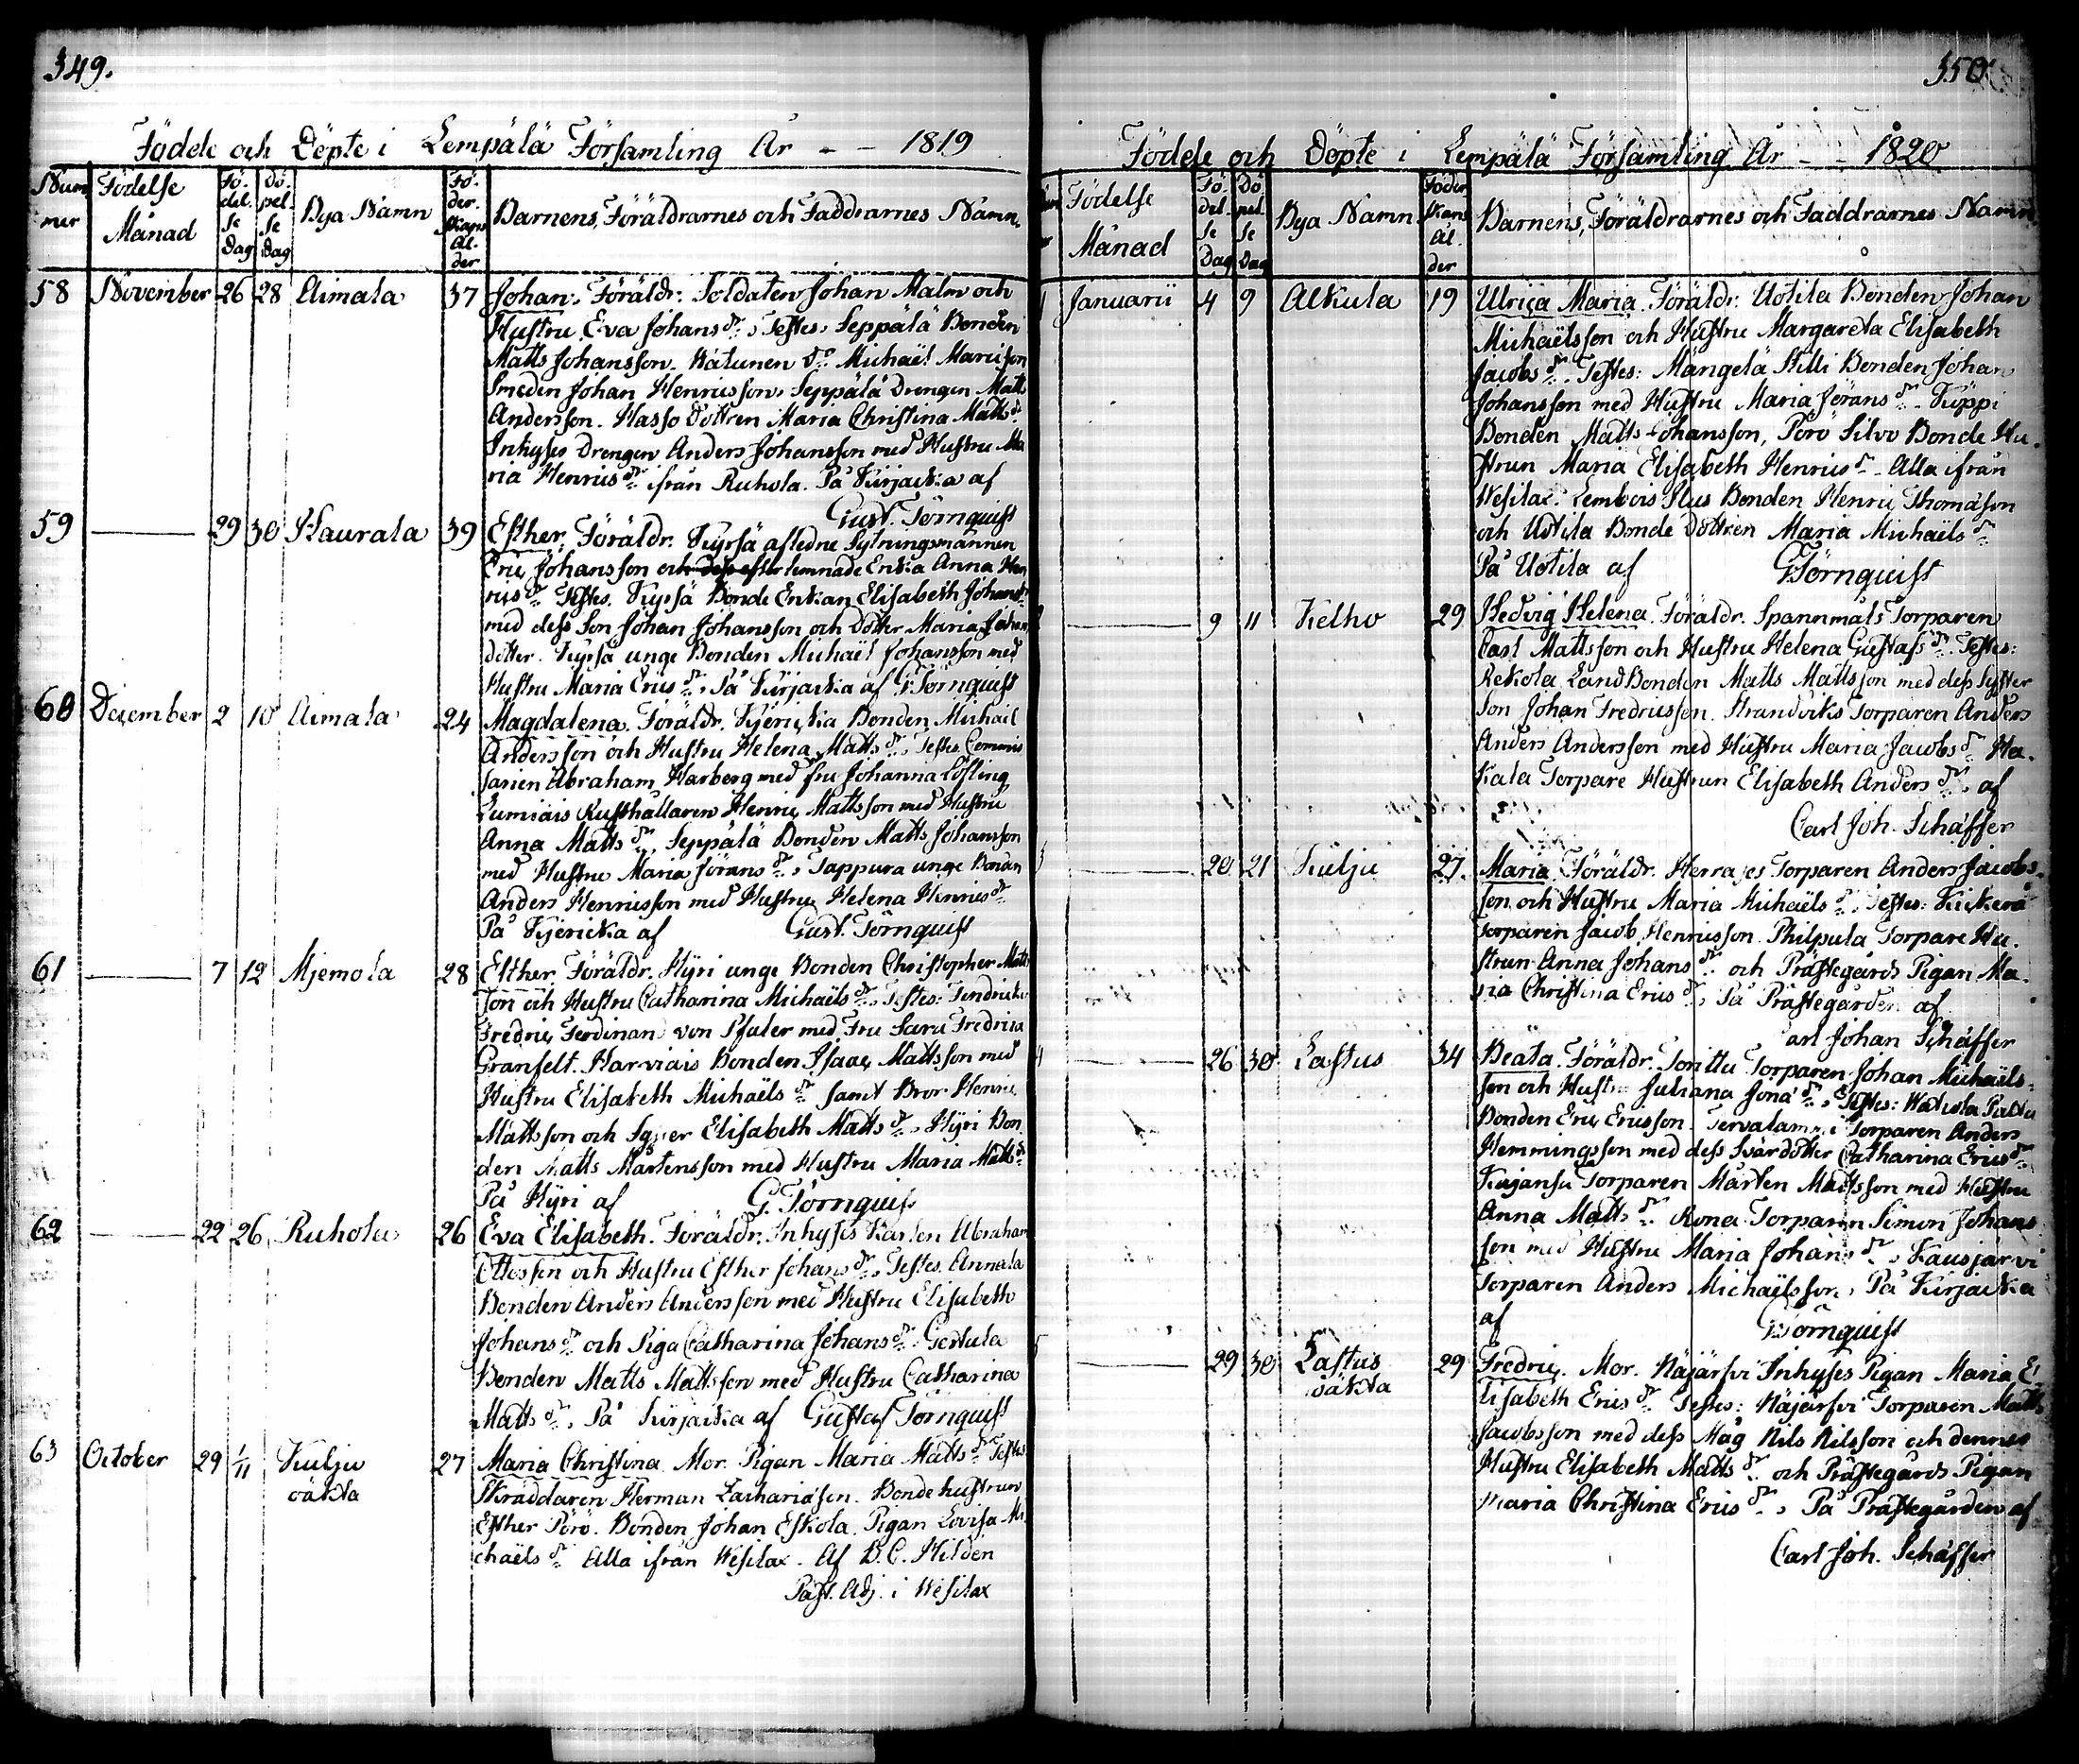 349.
Födde och Döpte i Lempälä Församling År - - 1819
Num mer
Födelse Månad
Fö- del- se Dag
Dö- pel- se Dag
Bya Namn
Fö- der- skans Ål- der
Barnens, Föräldrarnes och Faddrarnes Namn.
58 November 26 28 Aimala 37 Johan, Föräldr. Soldaten Johan Malm och
Hustru Eva Johans dr, Testes, Seppälä Bonden
Matts Johansson. Katunen dr Michaël Maricson
Smeden Johan Henricsson, Seppälä Drengen Matts
Andersson. Hasso Dottren Maria Christina Matts dr
Inhyses Drengen Anders Johansson med Hustru Ma
ria Henrics dr ifrån Kuhola. På Kirjaska af
Gust. Törnquist
59 — 29 30 Haurala 39 Esther, Föräldr. Kyrsä afledne Sytningsmannen
Eric Johansson och dess efterlemnade Enka Anna Hen
rics dr Testes. Kyrsä Bonde Enkan Elisabeth Johans dr
med dess Son Johan Johansson och Dotter Maria Johans
dotter. Kyrsä unge Bonden Michaël Johansson med
Hustru Maria Erics dr, På Kirjaska af G. Törnquist
60 December 2 10 Aimala 24 Magdalena. Föräldr. Kjericka Bonden Michaël
Andersson och Hustru Helena Matts dr, Testes. Commis
sarien Abraham Warberg med fru Johanna Löfling
Lumiais Rusthållaren Henric Mattsson med Hustru
Anna Matts dr, Seppälä Bonden Matts Johansson
med Hustru Maria Jörans dr, Tappura unge Bonden
Anders Henricsson med Hustru Helena Henrics dr
På Kjericka af Gust. Törnquist
61 — 7 12 Mjemola 28 Esther Föräldr. Hyri unge Bonden Christopher Matts
son och Hustru Catharina Michaëls dr, Testes:
Fredric Ferdinan von Pfaler med Fru Sara Fredrica
Granfelt. Harviais Bonden Isaac Mattsson med
Hustru Elisabeth Michaëls dr samt Bror Henric
Mattsson och Syster Elisabeth Matts dr, Hyri Bon
den Matts Mårtensson med Hustru Maria Matts dr
På Hyri af G. Törnquist
62 — 22 26 Kuhola 26 Eva Elisabeth. Föräldr. Inhyses Karlen Abraham
Ottosson och Hustru Esther Johans dr, Testes. Annala
Bonden Anders Andersson med Hustru Elisabeth
Johans dr och Piga Catharina Johans dr. Gertula
Bonden Matts Mattsson med Hustru Catharina
Matts dr, På Kirjaska af Gustaf Törnquist
63 October 29 1/11 Kulju oäkta 27 Maria Christina Mor. Pigan Maria Matts dr Testes
Skräddaren Herman Zachariasen. Bondehustrun
Esther Pörö. Bonden Johan Eskola. Pigan Lovisa Mi
chaëls dr Alla ifrån Wesilax. Af B. C. Hildén
Past. Adj. i Wesilax
350
Födde och Döpte i Lempälä Församling År - - 1820
Födelse Månad
Fö- del- se Dag
Dö- pel- se Dag
Bya Namn
Föder skans Ål- der
Barnens, Föräldrarnes och Faddrarnes Namn
1 Januarii 4 9 Alkula 19 Ulrica Maria. Föräldr. Uotila Bonden Johan
Michaëlsson och Hustru Margareta Elisabeth
Jacobs dr. Testes: Mängelä Hilli Bonden Johan
Johansson med Hustru Maria Jörans dr. Tuppi
Bonden Matts Johansson, Pörö Silvo Bonde Hu-
strun Maria Elisabeth Henrics dr. Alla ifrån
Wesilax. Lembois Hus Bonden Henric Thomasson
och Uotila Bonde dottren Maria Michaëls dr
På Uotila af G Törnquist
— 9 11 Kelho 29 Hedvig Helena. Föräldr. Spannmåls Torparen
Carl Mattsson och Hustru Helena Gustafs dr. Testes:
Rekola LandBonden Matts Mattsson med dess Syster
Son Johan Fredricsson. Strandviks Torparen Anders
Anders Andersson med Hustru Maria Jacobs dr Ha-
kala Torpare Hustrun Elisabeth Anders dr, af
Carl Joh. Schäffer
3 — 20 21 Kulju 27. Maria Föräldr. Herrajes Torparen Anders Jacobs-
son och Hustru Maria Michaëls dr, Testes:
Torparen Jacob Henricsson. Philpula Torpare Hu-
strun Anna Johans dr och Prästegårds Pigan Ma-
ria Christina Erics dr, På Prästegården af
Carl Johan Schäffer
4 — 26 30 Lastus 34 Beata. Föräldr. Torittu Torparen Johan Michaëls-
son och Hustru Juliana Jona dr, Testes:
Bonden Eric Ericsson. Tervalammi Torparen Anders
Hemmingsson med dess Svärdotter Catharina Erics dr
Kujansu Torparen Mårten Mattsson med Hustru
Anna Matts dr. Rona Torparen Simon Johans
son med Hustru Maria Johans dr, Kausjärvi
Torparen Anders Michaëlsson, På Kirjaska
af G Törnquist
5 — 29 30 Lastus oäkta 29 Fredric. Mor. Näjärfvi Inhyses Pigan Maria E
lisabeth Erics dr Testes: Näjärfvi Torparen Matts
Jacobsson med dess Måg Nils Nilsson och dennes
Hustru Elisabeth Matts dr. och Prästegårds Pigan
Maria Christina Erics dr, På Prästegården af
Carl Joh. Schäffer